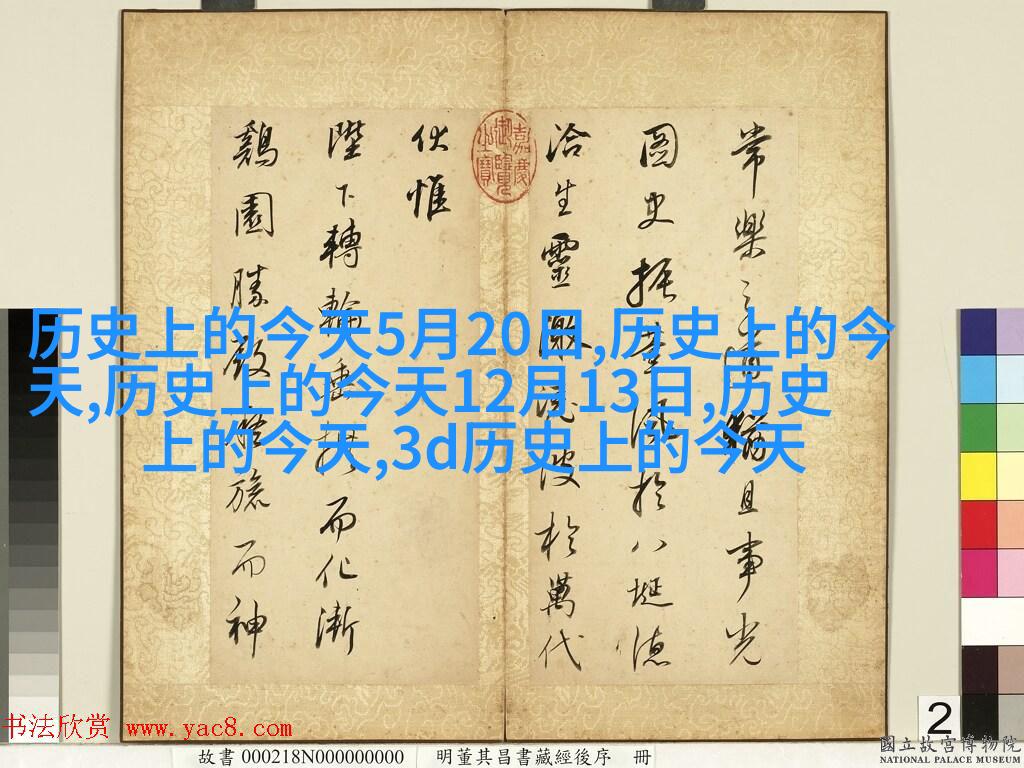 常樂之清且事光
圖史振於八埏德
洽生靈激淺波於萬代
伏惟
陛下轉輪垂拱而化漸
鷄園勝殿而神
嘉慶御覽之寶
历史上的今天5月20日,历史上的今
天,历史上的今天12月13日,历史
上的今天,3d历史上的今天
书法欣赏 www.yac8.com
故書 000218N000000000 明董其昌書藏經後序 冊
2
國立故宮博物院
NATIONAL PALACE MUSEUM